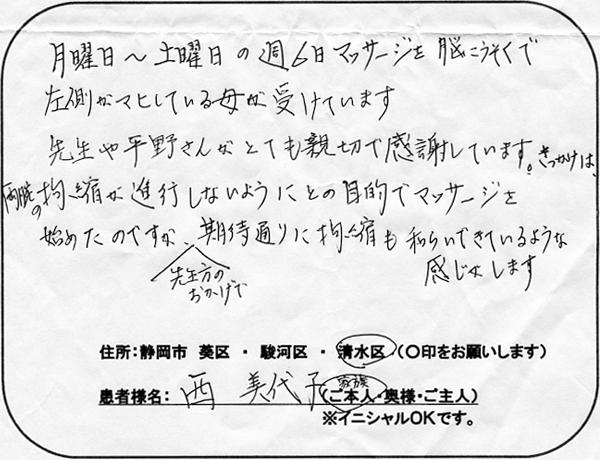 月曜日～土曜日の週6日マッサージを脳こうそくで
左側がマヒしている母が受けています
先生や平野さんがとても親切で感謝しています。きっかけは、
両腕の拘縮が進行しないようにとの目的でマッサージを
始めたのですが、期待通りに拘縮も和らいできているような
先生方の
おかげで
感じがします
住所：静岡市 葵区 ・ 駿河区 ・ 清水区 （〇印をお願いします）
家族
患者様名： 西 美代子 （ご本人・奥様・ご主人）
※イニシャルOKです。